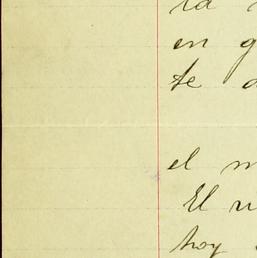 la
en g
te a
el m
El u
hoy